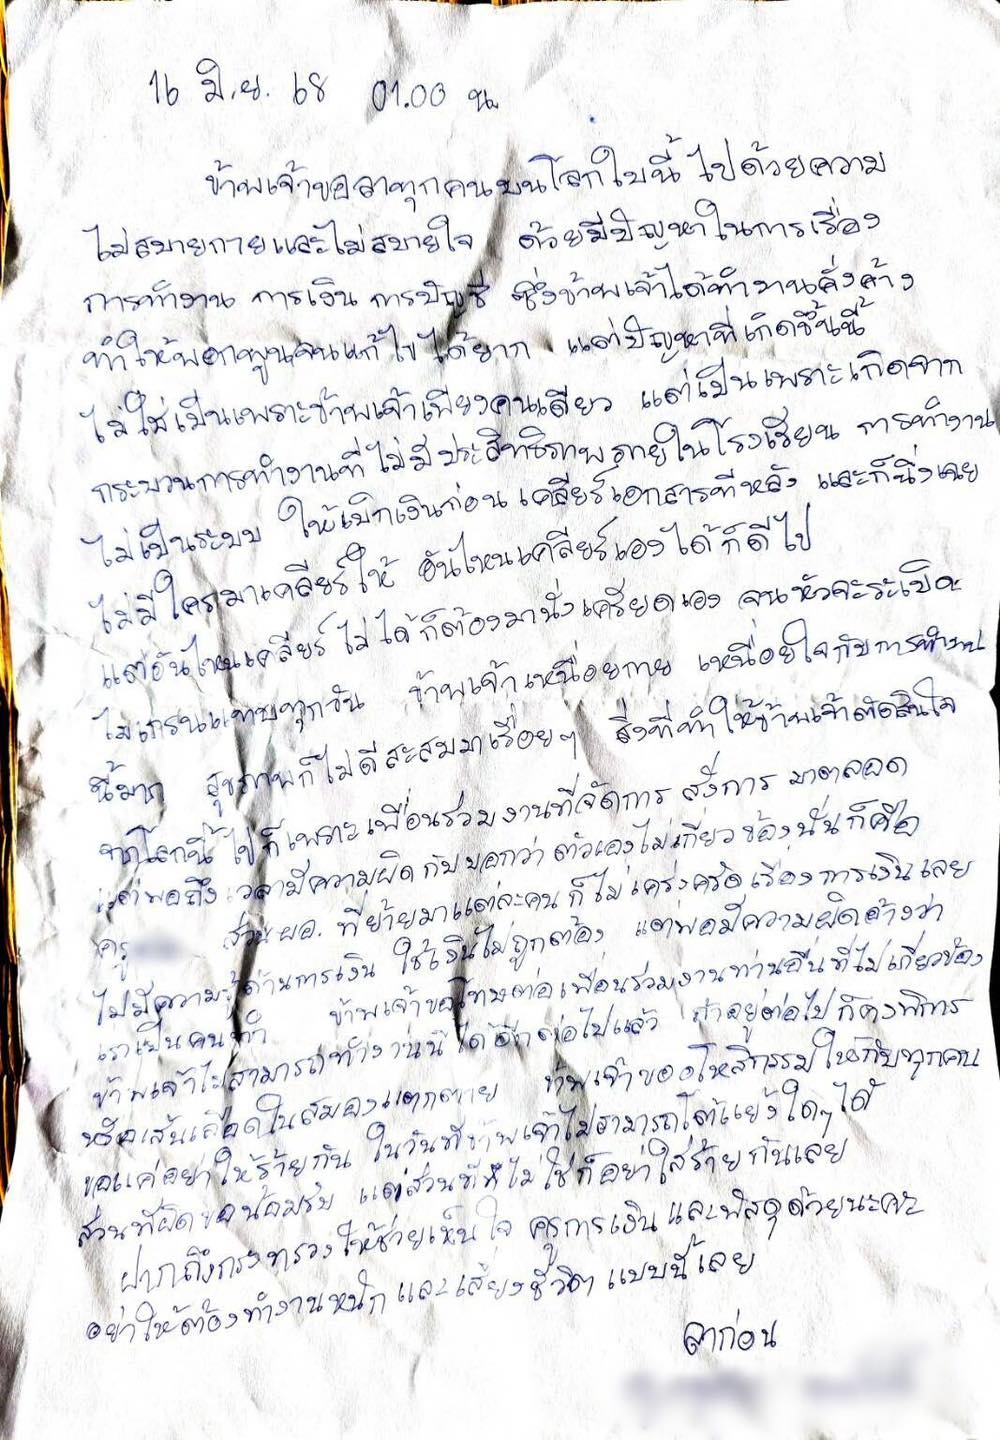 16 มิ.ย. 68 01.00 น.
ข้าพเจ้าขอลาทุกคนบนโลกใบนี้ ไปด้วยความ
ไม่สบายกายและไม่สบายใจ ด้วยมีปัญหาในการเรื่อง
การทำงาน การเงิน การบัญชี ซึ่งข้าพเจ้าได้ทำงานคั่งค้าง
ทำให้พอกพูนจนแก้ไขได้ยาก แต่ปัญหาที่เกิดขึ้นนี้
ไม่ใช่เป็นเพราะข้าพเจ้าเพียงคนเดียว แต่เป็นเพราะเกิดจาก
กระบวนการทำงานที่ไม่มีประสิทธิภาพภายในโรงเรียน การทำงาน
ไม่เป็นระบบ ให้เบิกเงินก่อน เคลียร์เอกสารทีหลัง และก็นิ่งเฉย
ไม่มีใครมาเคลียร์ให้ อันไหนเคลียร์เองได้ก็ดีไป
แต่อันไหนเคลียร์ไม่ได้ก็ต้องมานั่งเครียดเอง จนหัวจะระเบิด
ไมเกรนแทบทุกวัน ข้าพเจ้าเหนื่อยกาย เหนื่อยใจกับการทำงาน
นี้มาก สุขภาพก็ไม่ดีสะสมมาเรื่อยๆ สิ่งที่ทำให้ข้าพเจ้าตัดสินใจ
จากโลกนี้ไปก็เพราะเพื่อนร่วมงานที่จัดการ สั่งการ มาตลอด
แต่พอถึงเวลามีความผิดกับบอกว่า ตัวเองไม่เกี่ยวข้องนั่นก็คือ
ครู ส่วน ผอ. ที่ย้ายมาแต่ละคน ก็ไม่เคร่งครัดเรื่องการเงินเลย
ไม่มีความรู้ด้านการเงิน ใช้เงินไม่ถูกต้อง แต่พอมีความผิดอ้างว่า
เราเป็นคนทำ ข้าพเจ้าขอโทษต่อเพื่อนร่วมงานท่านอื่นที่ไม่เกี่ยวข้อง
ข้าพเจ้าไม่สามารถทำงานนี้ได้อีกต่อไปแล้ว ถ้าอยู่ต่อไปก็คงพิการ
หรือเส้นเลือดในสมองแตกตาย ข้าพเจ้าขออโหสิกรรมให้กับทุกคน
ขอแค่อย่าให้ร้ายกัน ในวันที่ข้าพเจ้าไม่สามารถโต้แย้งใดๆได้
ส่วนที่ผิดขอน้อมรับ แต่ส่วนที่ไม่ใช่ก็อย่าใส่ร้ายกันเลย
ฝากถึงกระทรวงให้ช่วยเห็นใจ ครูการเงินและพัสดุด้วยนะคะ
อย่าให้ต้องทำงานหนักและเสี่ยงชีวิต แบบนี้เลย
ลาก่อน